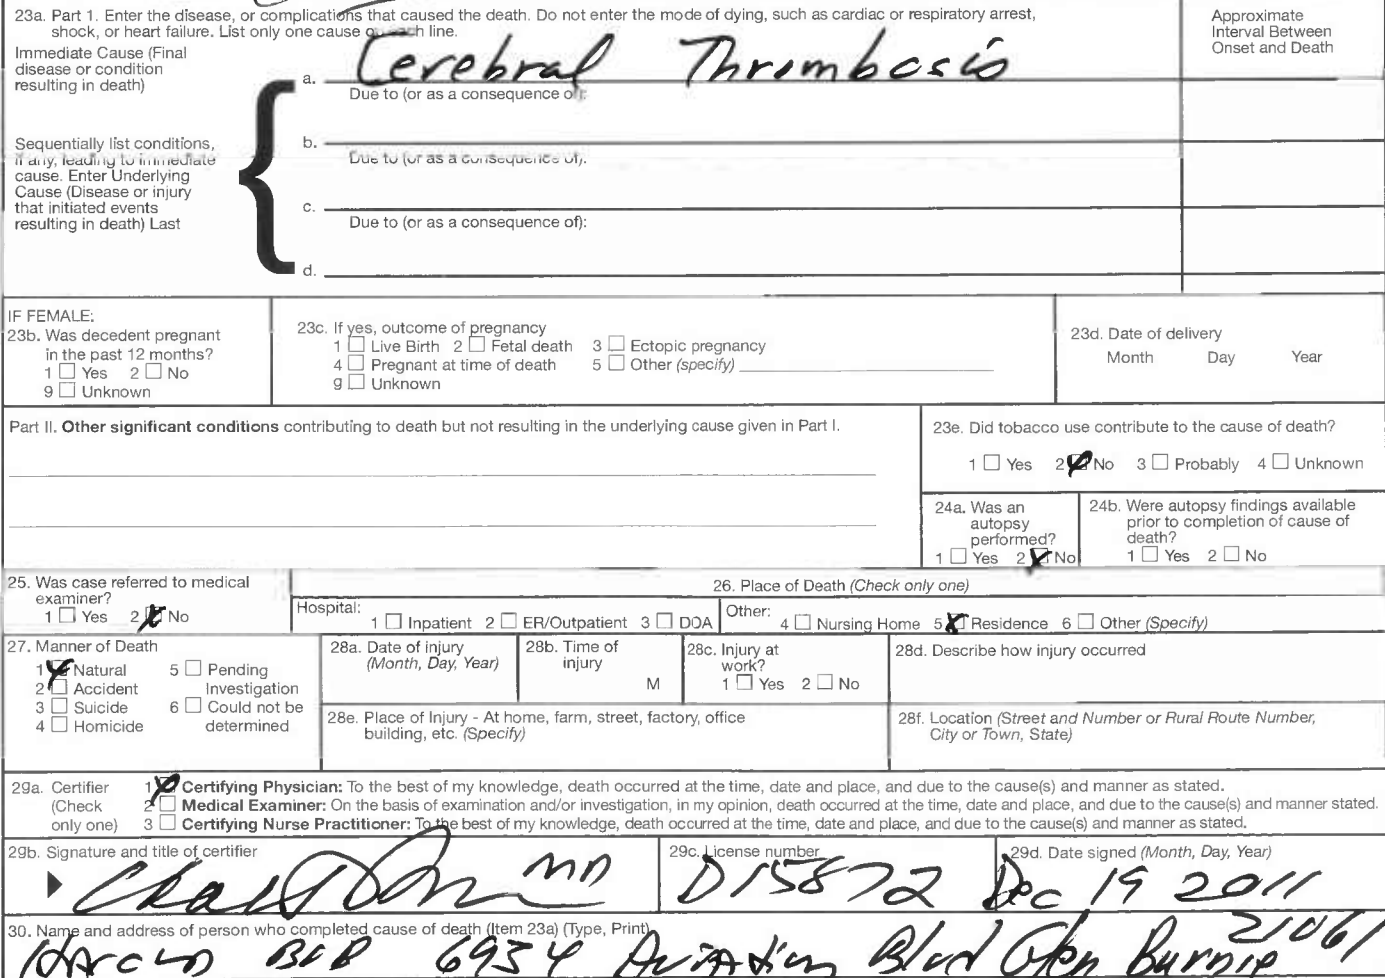 23a. Part 1. Enter the disease, or complications that caused the death. Do not enter the mode of dying, such as cardiac or respiratory arrest,
shock, or heart failure. List only one cause on each line.
Approximate
Interval Between
Onset and Death
Immediate Cause (Final
disease or condition
resulting in death)
a. Cerebral Thrombosis
Due to (or as a consequence of):
Sequentially list conditions,
if any, leading to immediate
cause. Enter Underlying
Cause (Disease or injury
that initiated events
resulting in death) Last
b.
Due to (or as a consequence of):
c.
Due to (or as a consequence of):
d.
IF FEMALE:
23b. Was decedent pregnant
in the past 12 months?
1 Yes 2 No
9 Unknown
23c. If yes, outcome of pregnancy
1 Live Birth 2 Fetal death 3 Ectopic pregnancy
4 Pregnant at time of death 5 Other (specify)
9 Unknown
23d. Date of delivery
Month Day Year
Part II. Other significant conditions contributing to death but not resulting in the underlying cause given in Part I.
23e. Did tobacco use contribute to the cause of death?
1 Yes 2 No 3 Probably 4 Unknown
24a. Was an
autopsy
performed?
1 Yes 2 No
24b. Were autopsy findings available
prior to completion of cause of
death?
1 Yes 2 No
25. Was case referred to medical
examiner?
1 Yes 2 No
26. Place of Death (Check only one)
Hospital:
1 Inpatient 2 ER/Outpatient 3 DOA
Other:
4 Nursing Home 5 Residence 6 Other (Specify)
27. Manner of Death
1 Natural 5 Pending
2 Accident Investigation
3 Suicide 6 Could not be
4 Homicide determined
28a. Date of injury
(Month, Day, Year)
28b. Time of
injury
M
28c. Injury at
work?
1 Yes 2 No
28d. Describe how injury occurred
28e. Place of Injury - At home, farm, street, factory, office
building, etc. (Specify)
28f. Location (Street and Number or Rural Route Number,
City or Town, State)
29a. Certifier
(Check
only one)
1 Certifying Physician: To the best of my knowledge, death occurred at the time, date and place, and due to the cause(s) and manner as stated.
2 Medical Examiner: On the basis of examination and/or investigation, in my opinion, death occurred at the time, date and place, and due to the cause(s) and manner stated.
3 Certifying Nurse Practitioner: To the best of my knowledge, death occurred at the time, date and place, and due to the cause(s) and manner as stated.
29b. Signature and title of certifier
MD
29c. License number
D15872
29d. Date signed (Month, Day, Year)
Dec 19 2011
30. Name and address of person who completed cause of death (Item 23a) (Type, Print)
6934 Aviation Blvd Glen Burnie 21061